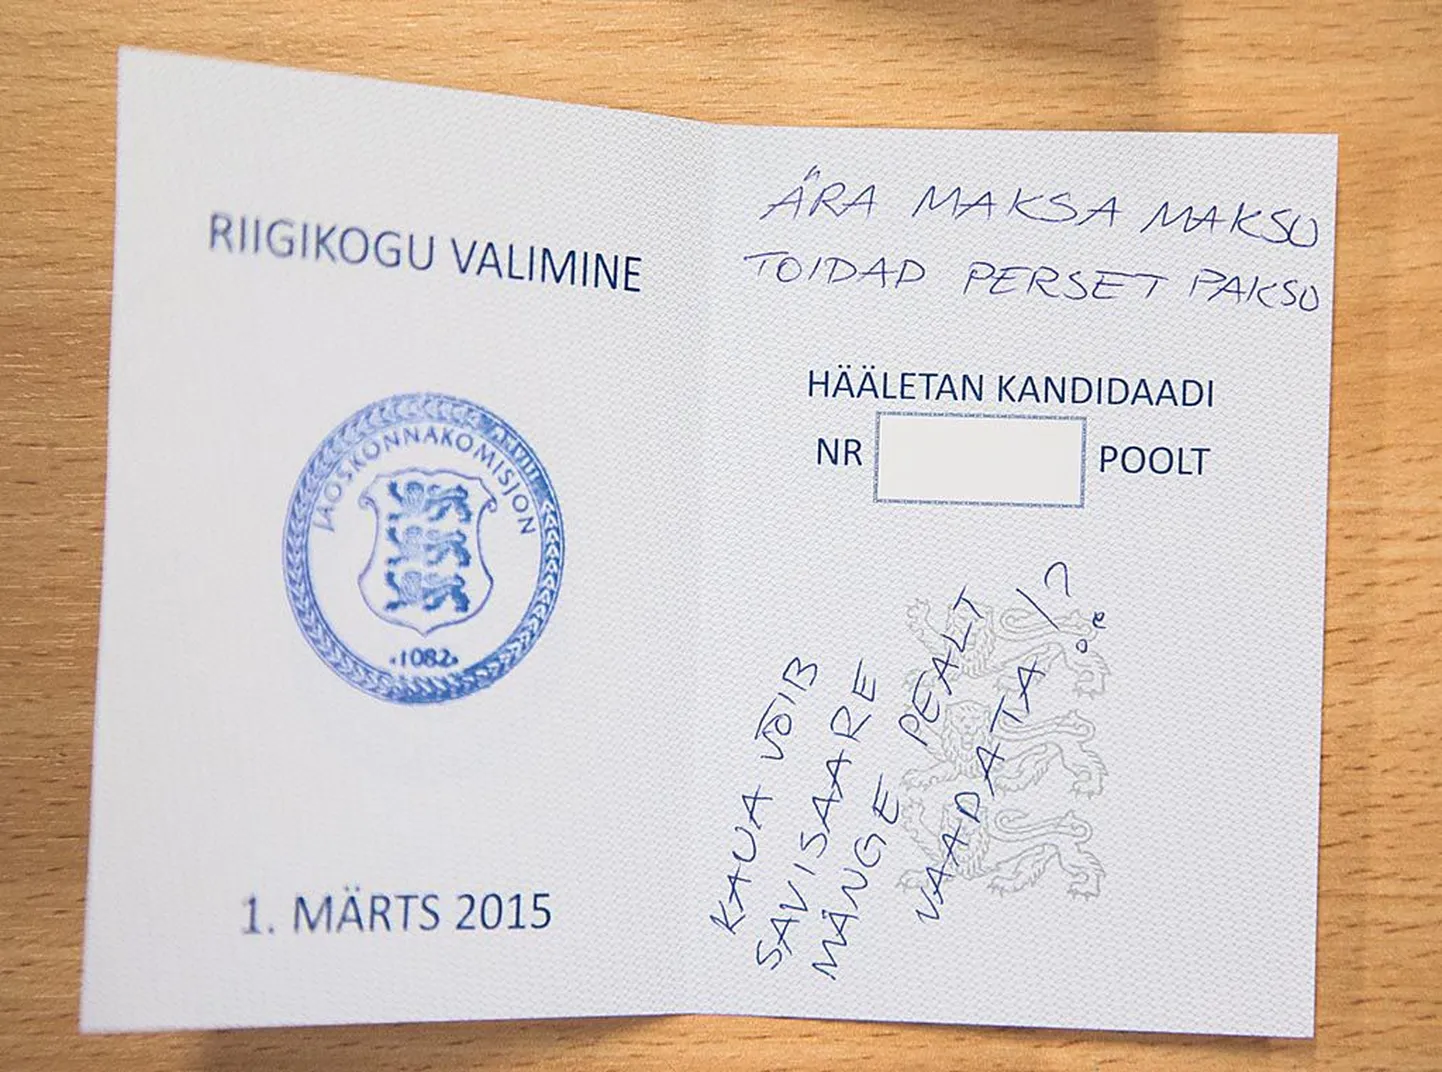 RIIGIKOGU VALIMINE
JAOSKONNAKOMISJON
1082
1. MÄRTS 2015
ÄRA MAKSA MAKSU
TOIDAD PERSET PAKSU
HÄÄLETAN KANDIDAADI
NR POOLT
KAUA VÕIB
SAVISAARE
MÄNGE PEALT
VAADATA !?